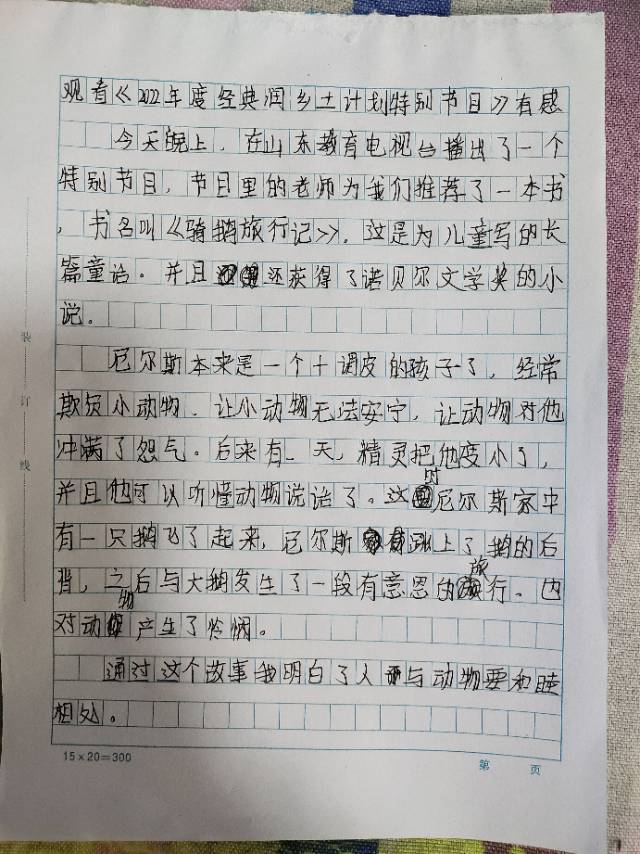 观看《2022年度经典润乡土计划特别节目》有感
今天晚上，在山东教育电视台播出了一个
特别节目，节目里的老师为我们推荐了一本书
，书名叫《骑鹅旅行记》，这是为儿童写的长
篇童话。并且还获得了诺贝尔文学奖的小
说。
尼尔斯本来是一个十调皮的孩子了，经常
欺负小动物．让小动物无法安宁，让动物对他
冲满了怨气。后来有一天，精灵把他变小了，
并且他可以听懂动物说话了。这时尼尔斯家中
有一只鹅飞了起来，尼尔斯跳上了鹅的后
背，之后与大鹅发生了一段有意思的旅行。也
对动物产生了怜悯。
通过这个故事我明白了人与动物要和睦
相处。
装
订
线
15×20=300
第 页